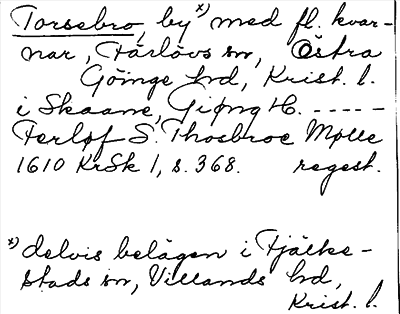 Torsebro, by x) med fl. kvar-
nar, Färlövs sn, Östra
Göinge hd, Krist. l.
i Skaane, Giøng H. -----
Ferløf S. Thosbroe Mølle
1610 KrSk 1, s. 368. regest.
x) delvis belägen i Fjälke-
stads sn, Villands hd,
Krist. l.